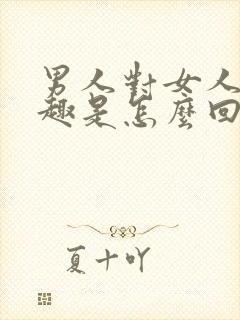 男人對女人
趣是怎麼回
夏十吖